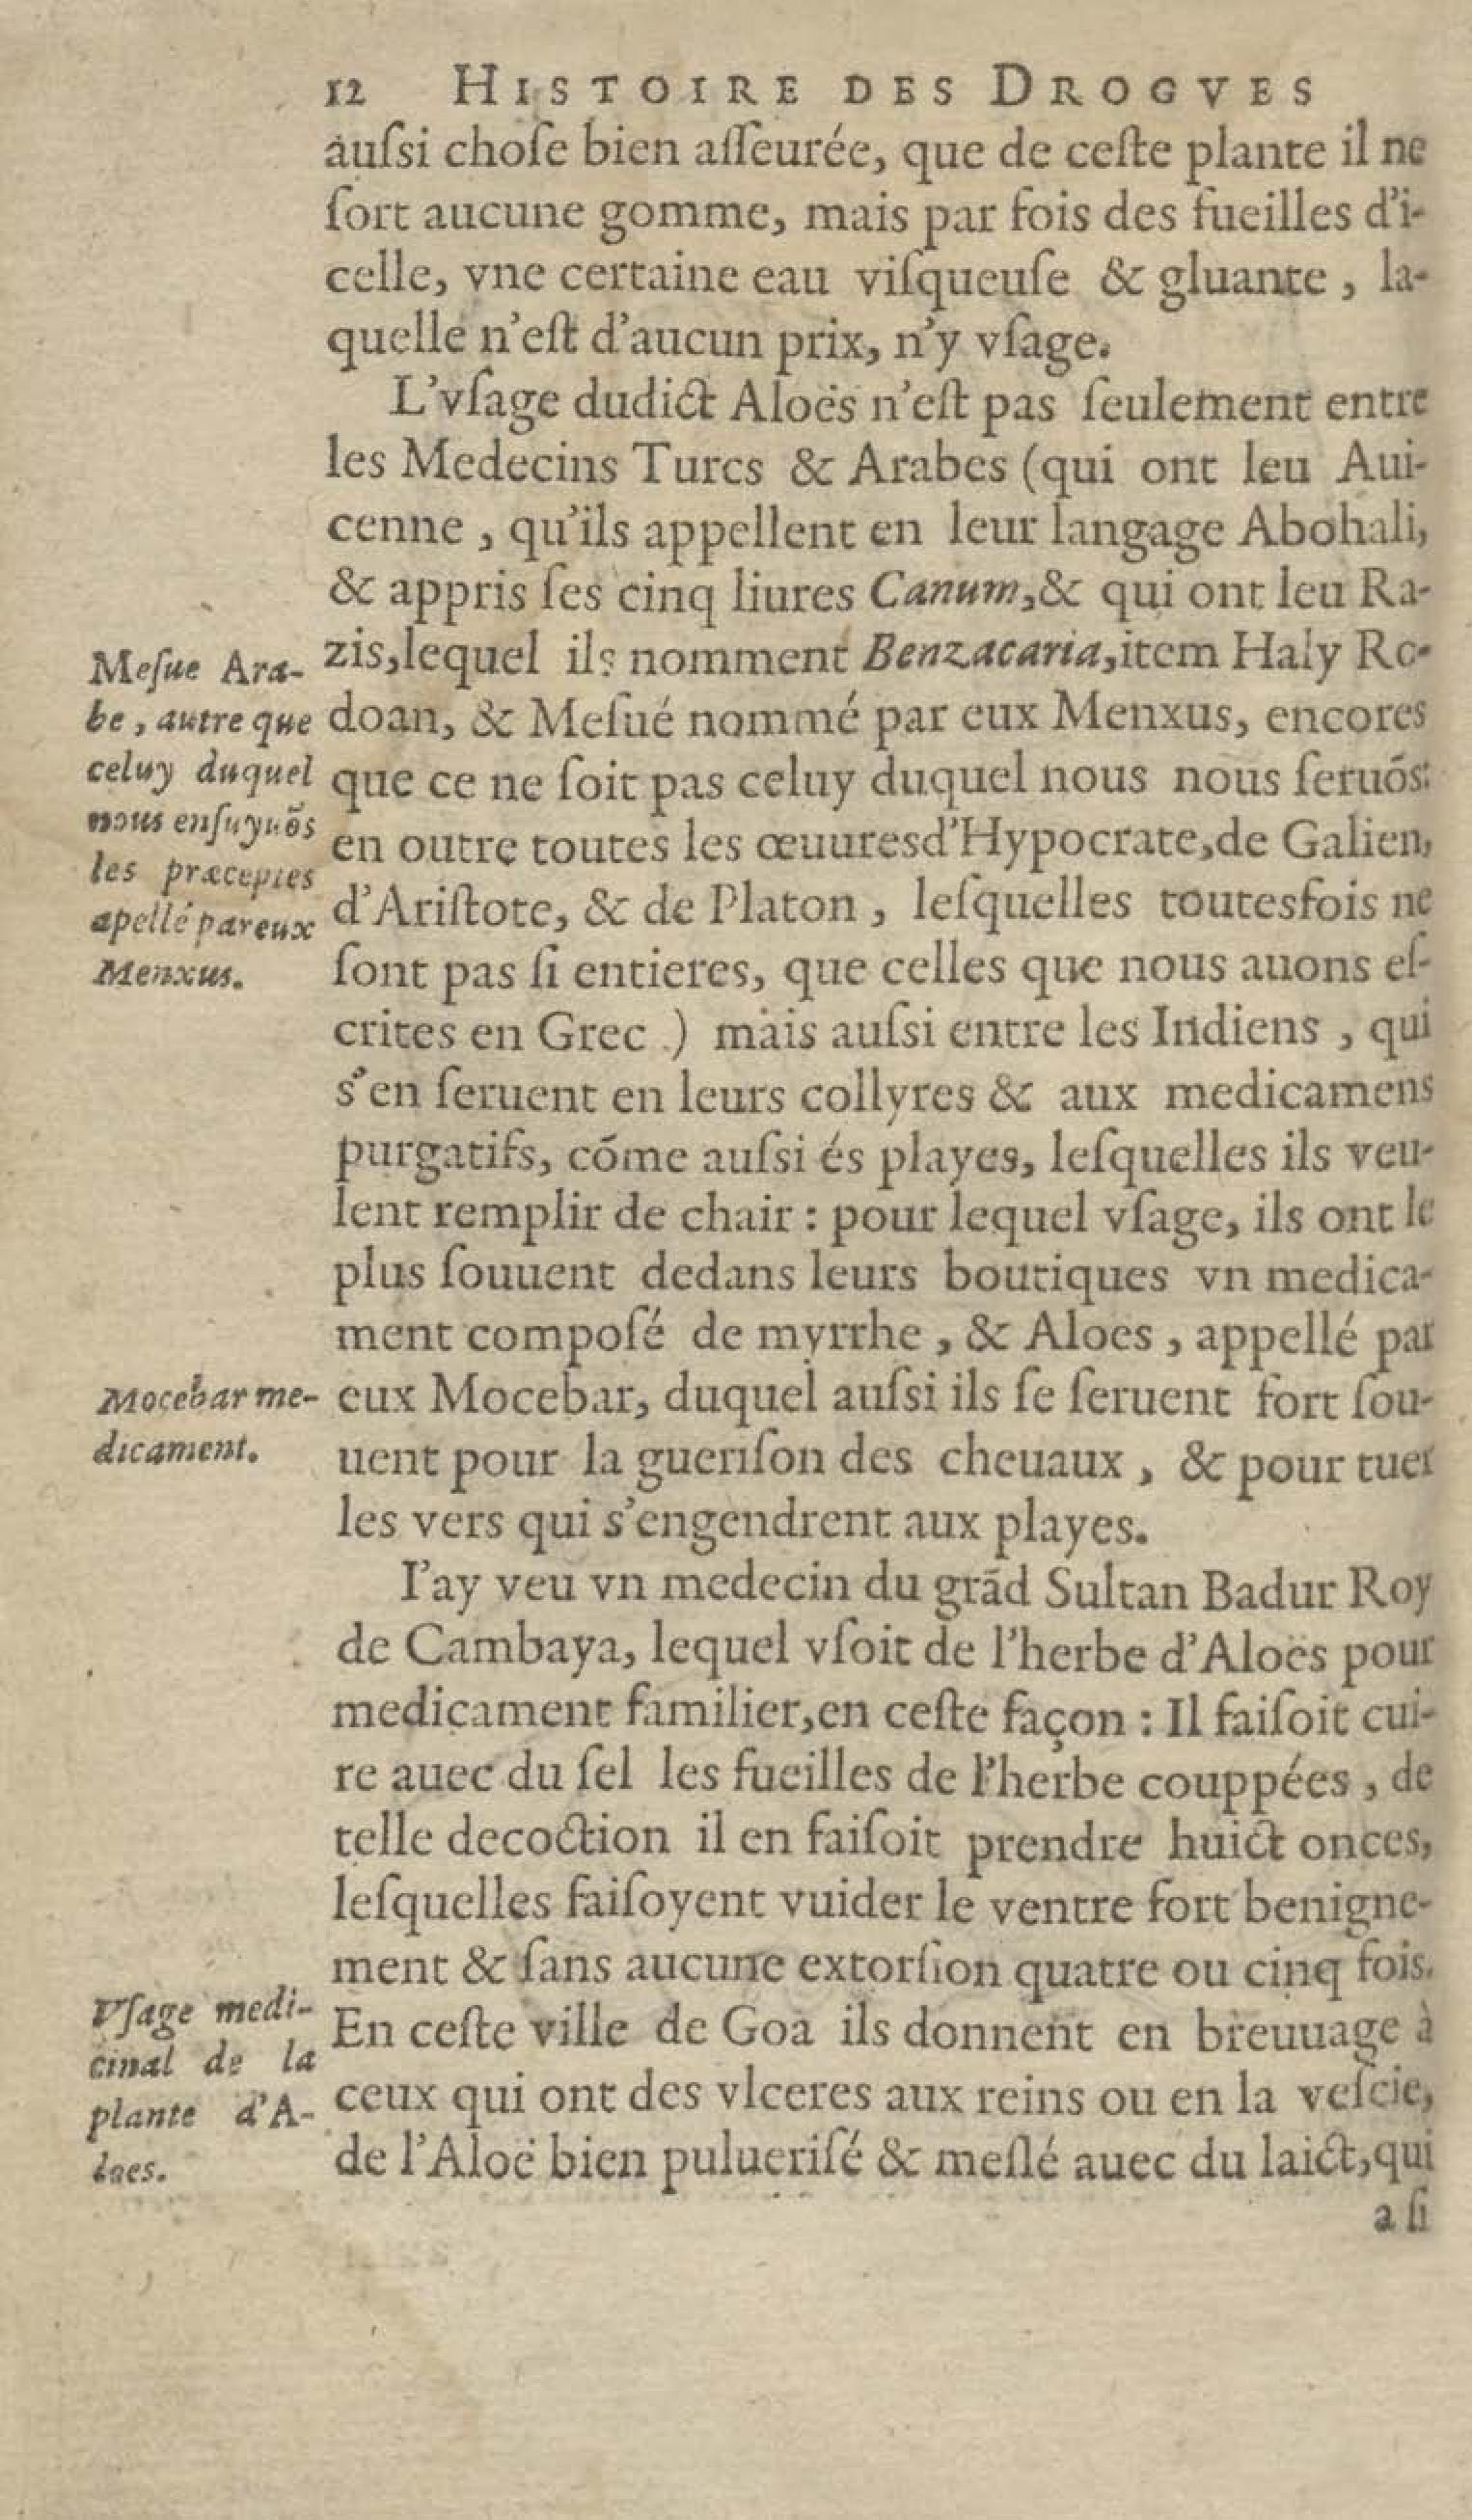 12 HISTOIRE DES DROGVES
auſsi choſe bien aſſeurée, que de ceſte plante il ne
ſort aucune gomme, mais par fois des fueilles d'i-
celle, vne certaine eau viſqueuſe & gluante, la-
quelle n'eſt d'aucun prix, n'y vſage.
L'vſage dudict Aloës n'eſt pas ſeulement entre
les Medecins Turcs & Arabes (qui ont leu Aui-
cenne, qu'ils appellent en leur langage Abohali,
& appris ſes cinq liures Canum, & qui ont leu Ra-
zis, lequel ils nomment Benzacaria, item Haly Ro-
doan, & Meſué nommé par eux Menxus, encores
que ce ne ſoit pas celuy duquel nous nous ſeruõs:
en outre toutes les œuures d'Hypocrate, de Galien,
d'Ariſtote, & de Platon, leſquelles toutesfois ne
ſont pas ſi entieres, que celles que nous auons eſ-
crites en Grec ) mais auſsi entre les Indiens, qui
s'en ſeruent en leurs collyres & aux medicamens
purgatifs, cõme auſsi és playes, leſquelles ils veu-
lent remplir de chair : pour lequel vſage, ils ont le
plus ſouuent dedans leurs boutiques vn medica-
ment compoſé de myrrhe, & Aloes, appellé par
eux Mocebar, duquel auſsi ils ſe ſeruent fort ſou-
uent pour la gueriſon des cheuaux, & pour tuer
les vers qui s'engendrent aux playes.
I'ay veu vn medecin du grãd Sultan Badur Roy
de Cambaya, lequel vſoit de l'herbe d'Aloës pour
medicament familier, en ceſte façon : Il faiſoit cui-
re auec du ſel les fueilles de l'herbe couppées, de
telle decoction il en faiſoit prendre huict onces,
leſquelles faiſoyent vuider le ventre fort benigne-
ment & ſans aucune extorſion quatre ou cinq fois.
En ceſte ville de Goa ils donnent en breuuage à
ceux qui ont des vlceres aux reins ou en la veſcie,
de l'Aloë bien pulueriſé & meſlé auec du laict, qui
a ſi
Meſue Ara-
be, autre que
celuy duquel
nous enſuyuõs
les præceptes
apellé par eux
Menxus.
Mocebar me-
dicament.
Vſage medi-
cinal de la
plante d'A-
loes.